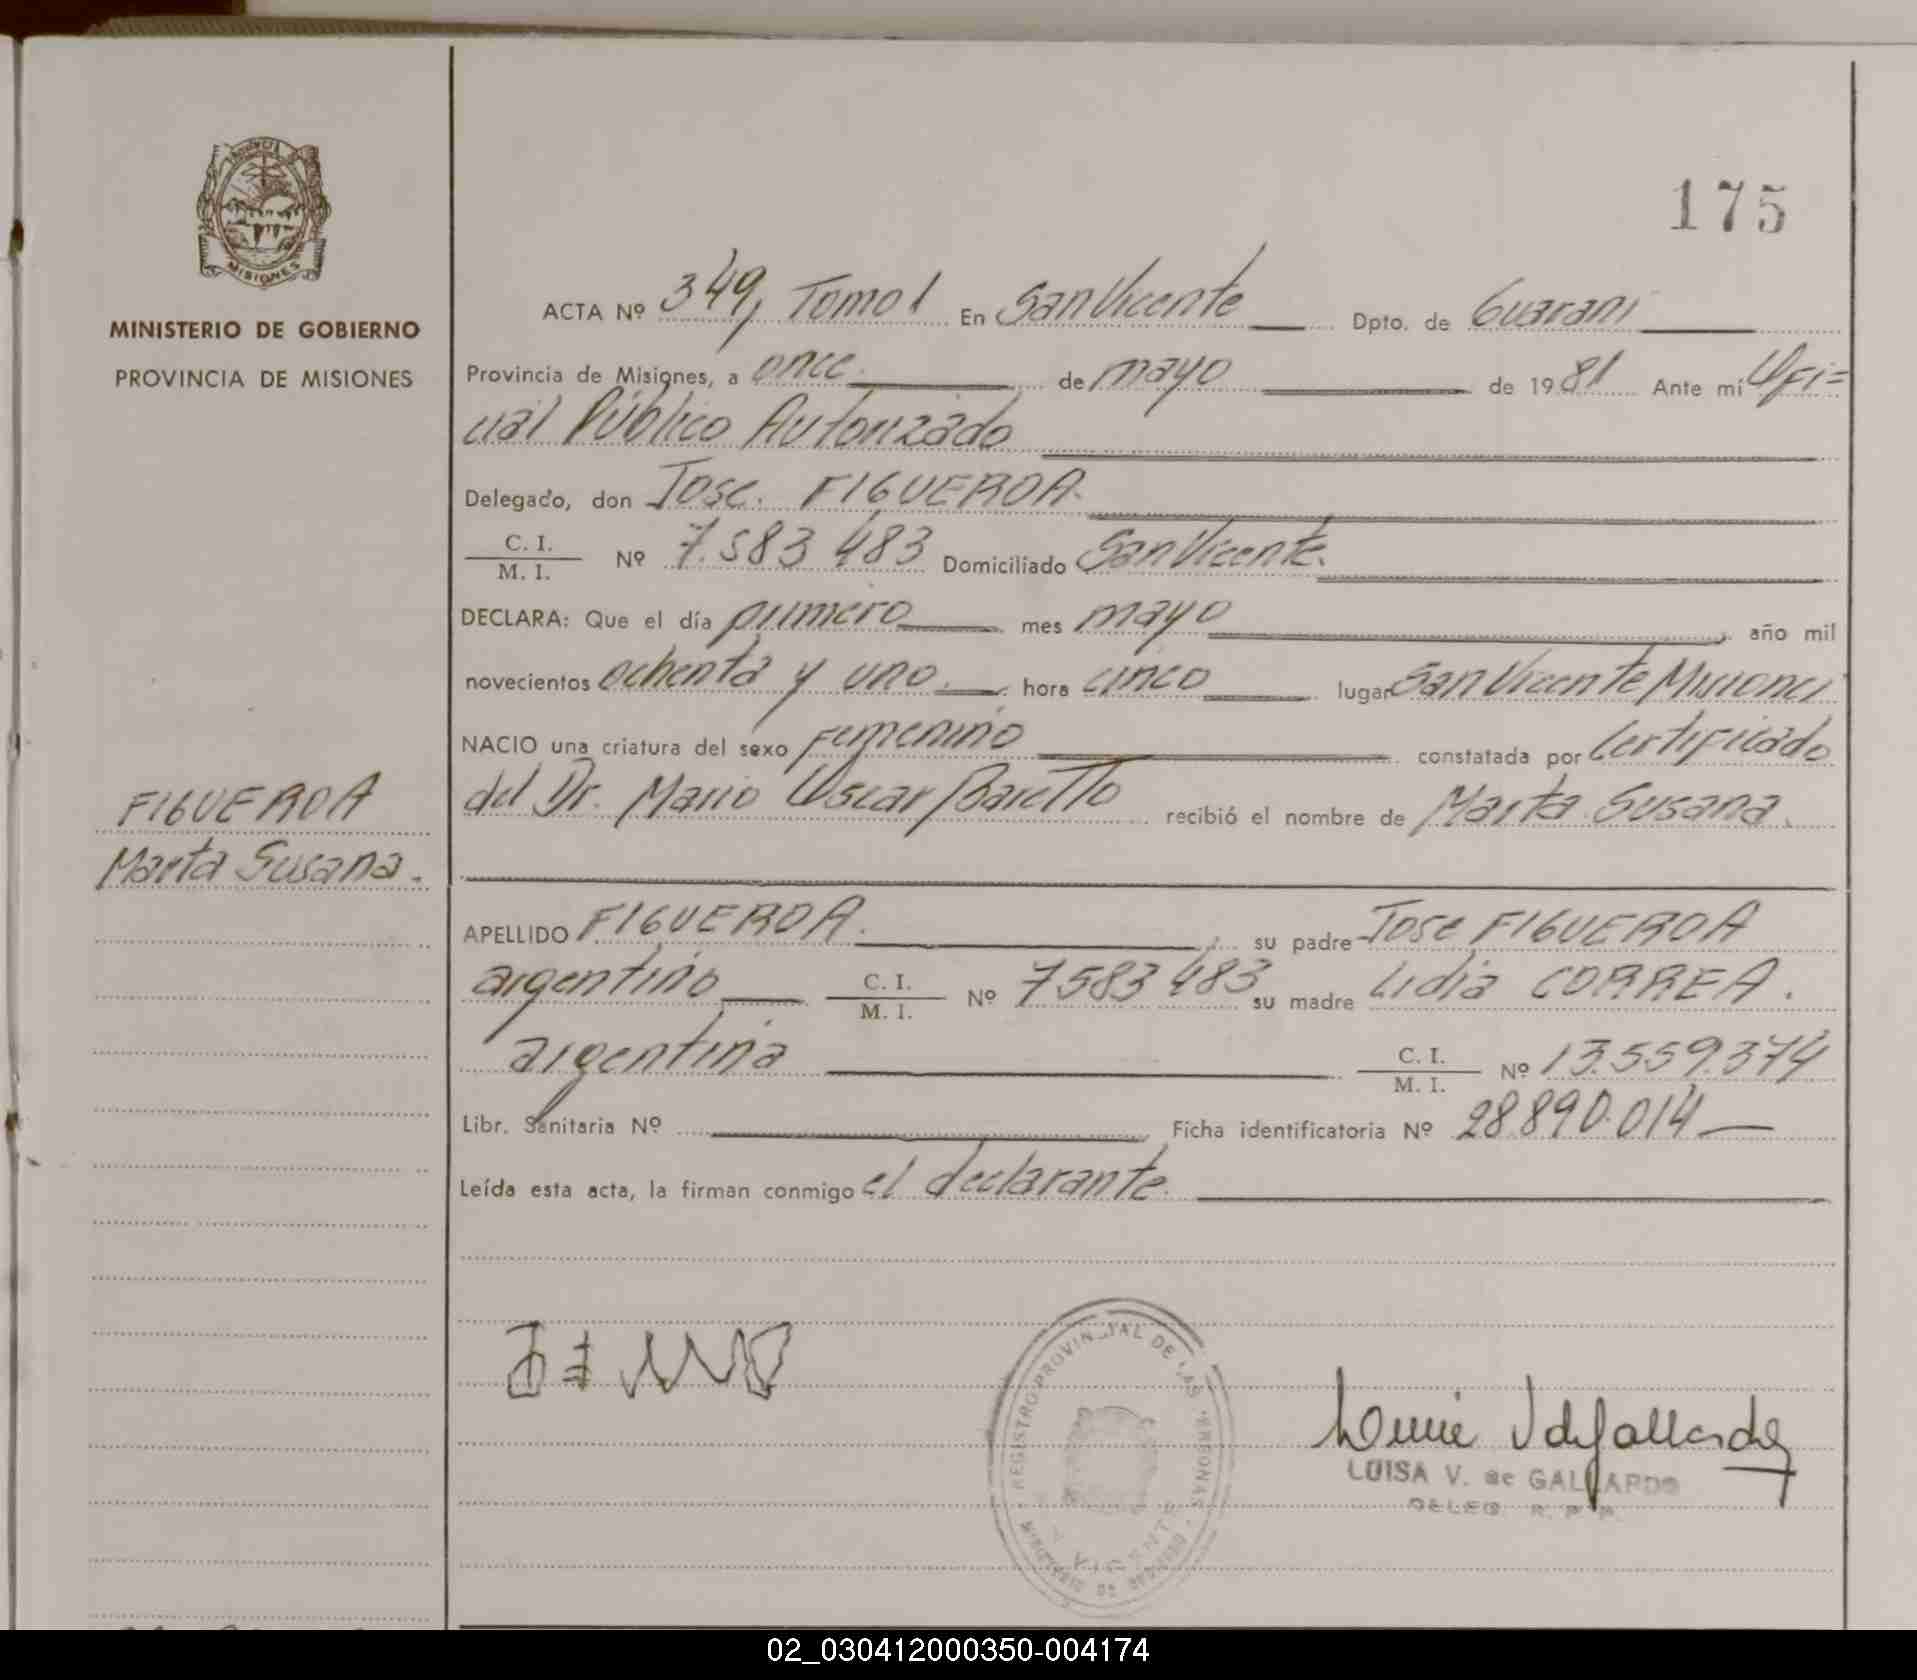 175
MINISTERIO DE GOBIERNO
PROVINCIA DE MISIONES
MISIONES
ACTA Nº 349, Tomo 1 En San Vicente Dpto. de Guarani
Provincia de Misiones, a once de mayo de 1981 Ante mí Ofi=
cial Público Autorizado
Delegado, don Jose FIGUEROA
C. I. / M. I. Nº 7.583 483 Domiciliado San Vicente.
DECLARA: Que el día primero mes mayo, año mil
novecientos ochenta y uno hora cinco lugar San Vicente Misiones
NACIO una criatura del sexo Femenino constatada por Certificado
del Dr. Mario Oscar Baretto recibió el nombre de Marta Susana.
FIGUEROA
Marta Susana.
APELLIDO FIGUEROA, su padre Jose FIGUEROA
argentino C. I. / M. I. Nº 7583 483 su madre Lidia CORREA.
argentina C. I. / M. I. Nº 13.559.374
Libr. Sanitaria Nº Ficha identificatoria Nº 28.890.014
Leída esta acta, la firman conmigo el declarante
REGISTRO PROVINCIAL DE LAS PERSONAS
MINISTERIO DE GOBIERNO
VICENTE
LUISA V. de GALLARDO
DELEG. R. P. P.
02_030412000350-004174